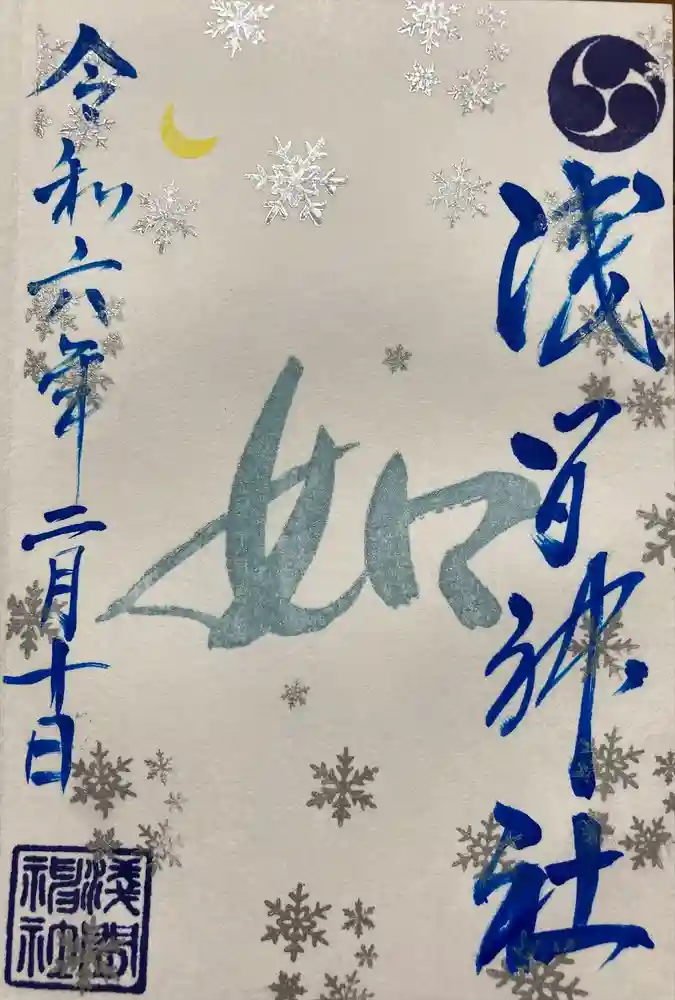 浅間神社
如
令和六年二月十日
淺間神社